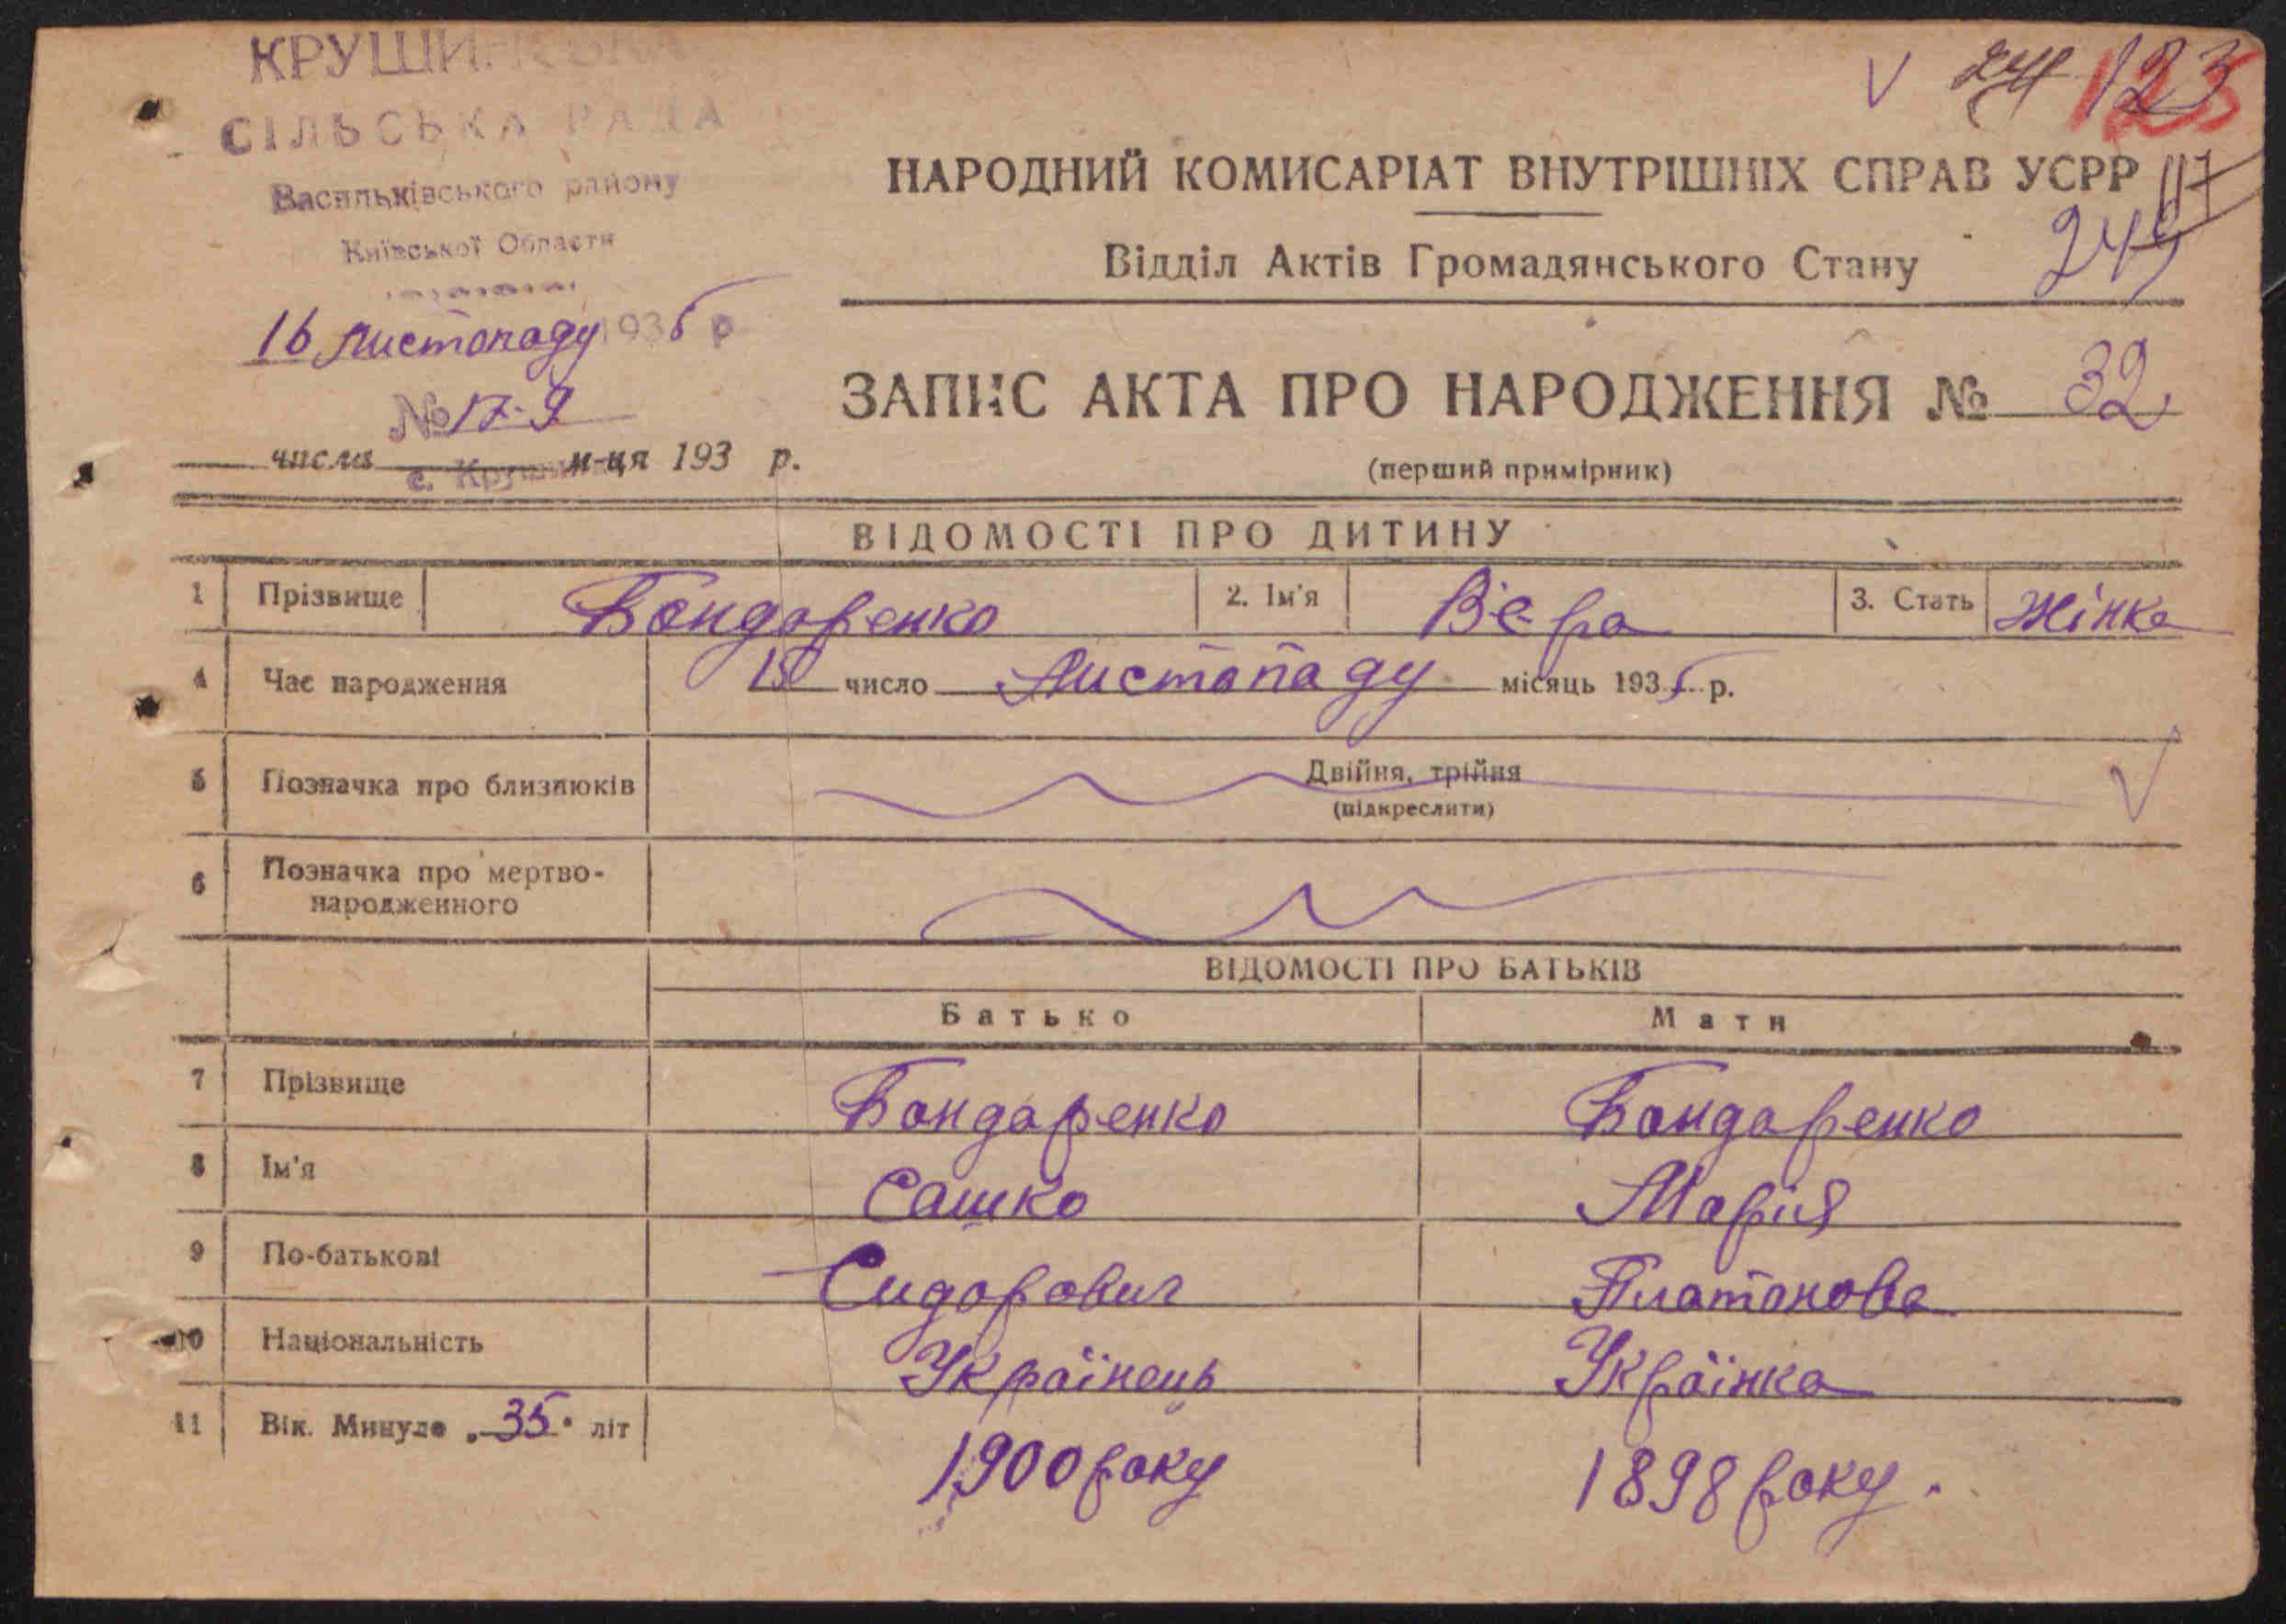 КРУШИНСЬКА
СІЛЬСЬКА РАДА
Васильківського району
Київської Области
16 листопаду 1935 р
№ 17-9
с. Крушинка
числа м-ця 193 р.
244 123
123
НАРОДНИЙ КОМИСАРІАТ ВНУТРІШНІХ СПРАВ УСРР 117
Відділ Актів Громадянського Стану 249
ЗАПИС АКТА ПРО НАРОДЖЕННЯ № 32
(перший примірник)
ВІДОМОСТІ ПРО ДИТИНУ
1 Прізвище Бондаренко 2. Ім'я Вера 3. Стать Жінка
4 Час народження 15 число Листопаду місяць 1935 р.
5 Позначка про близнюків Двійня, трійня
(підкреслити)
6 Позначка про мертво-
народженного
ВІДОМОСТІ ПРО БАТЬКІВ
Батько Мати
7 Прізвище Бондаренко Бондаренко
8 Ім'я Сашко Мария
9 По-батькові Сидорович Платонова
10 Національність Українець Українка
11 Вік. Минуло 35 літ 1900 року 1898 року.